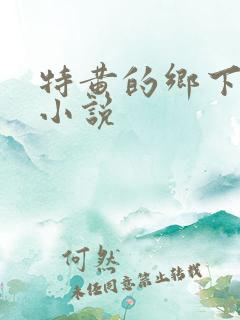 特黄的鄉下
小說
何然
未经同意禁止转载